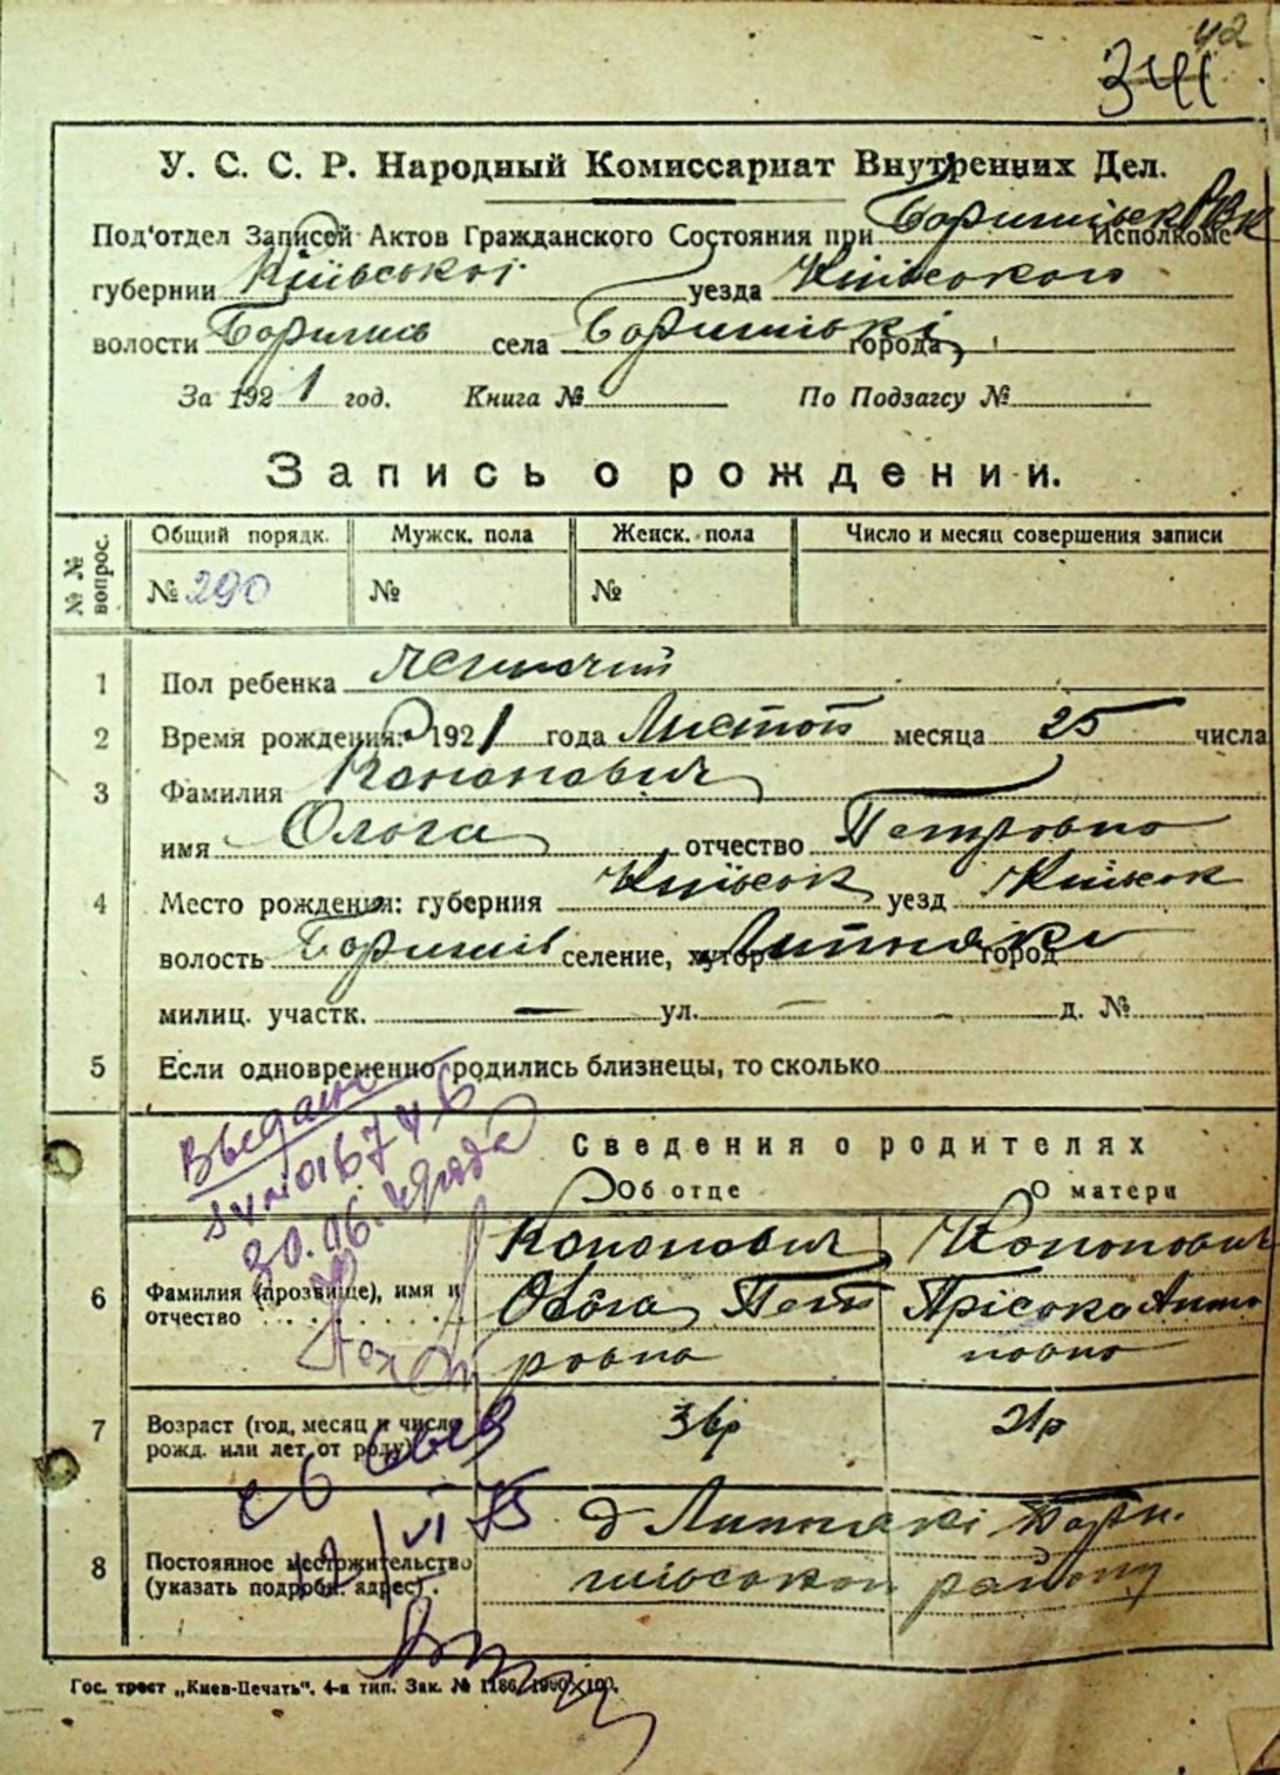 42
341
У. С. С. Р. Народный Комиссариат Внутренних Дел.
Под'отдел Записей Актов Гражданского Состояния при Исполкоме
губернии Київської уезда Київського
волости Боришпіль села Боришпільскі города
За 1921 год. Книга № По Подзагсу №
Запись о рождении.
№ № вопрос. Общий порядк. Мужск. пола Женск. пола Число и месяц совершения записи
№ 290 № №
1 Пол ребенка Женочий
2 Время рождения: 1921 года Листоп месяца 25 числа
3 Фамилия Кононович
имя Ольга отчество Петровна
4 Место рождения: губерния Київськ уезд Київськ
волость Боришпіл селение, хутор Липняки город
милиц. участк. — ул. — д. №
5 Если одновременно родились близнецы, то сколько
Сведения о родителях
Об отце О матери
Выдано
20.06.
года
6 Фамилия (прозвище), имя и отчество
Кононович Кононович
Пет Пріська Анто
ровна новна
7 Возраст (год, месяц и число рожд. или лет от роду) 36р 21р
12/VI 75
8 Постоянное местожительство (указать подробн. адрес).
д Липнякі Бори
пільського району
Гос. трест „Киев-Печать". 4-я тип. Зак. № 1186/1990×100.